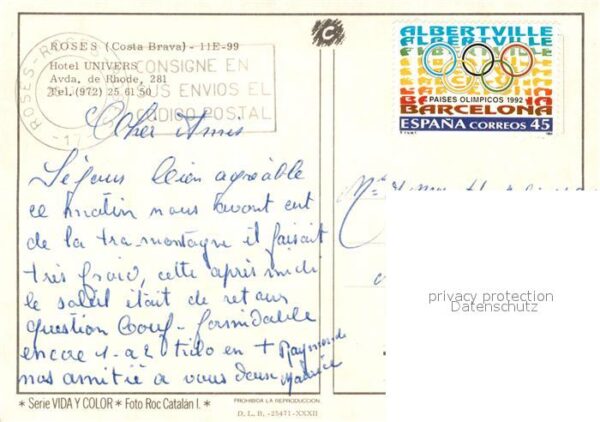 ROSES (Costa Brava) - 11E-99
Hotel UNIVERS
Avda. de Rhode, 281
Tel. (972) 25 61 50
ROSES
CONSIGNE EN
SUS ENVIOS EL
CODIGO POSTAL
C
ALBERTVILLE
PAISES OLIMPICOS 1992
BARCELONA
ESPAÑA CORREOS 45
Cher Amis
Séjour bien agréable
ce matin nous avont eut
de la tramontagne il faisait
très froid, cette après midi
le soleil était de retour
question Bouf - formidable
encore 1 a 2 kilo en + Raymonde
nos amitié a vous deux Maurice
privacy protection
Datenschutz
* Serie VIDA Y COLOR * Foto Roc Catalán I. *
PROHIBIDA LA REPRODUCCION.
D. L. B. -25471-XXXII